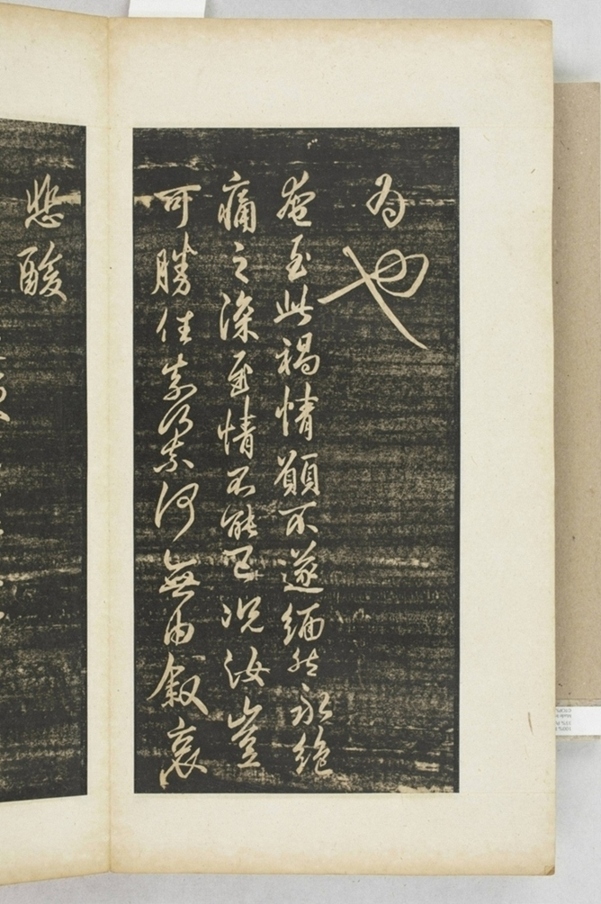 為也
奄至此禍情願不遂緬然永絕
痛之深至情不能已況汝豈
可勝任奈何奈何無由叙哀
悲酸